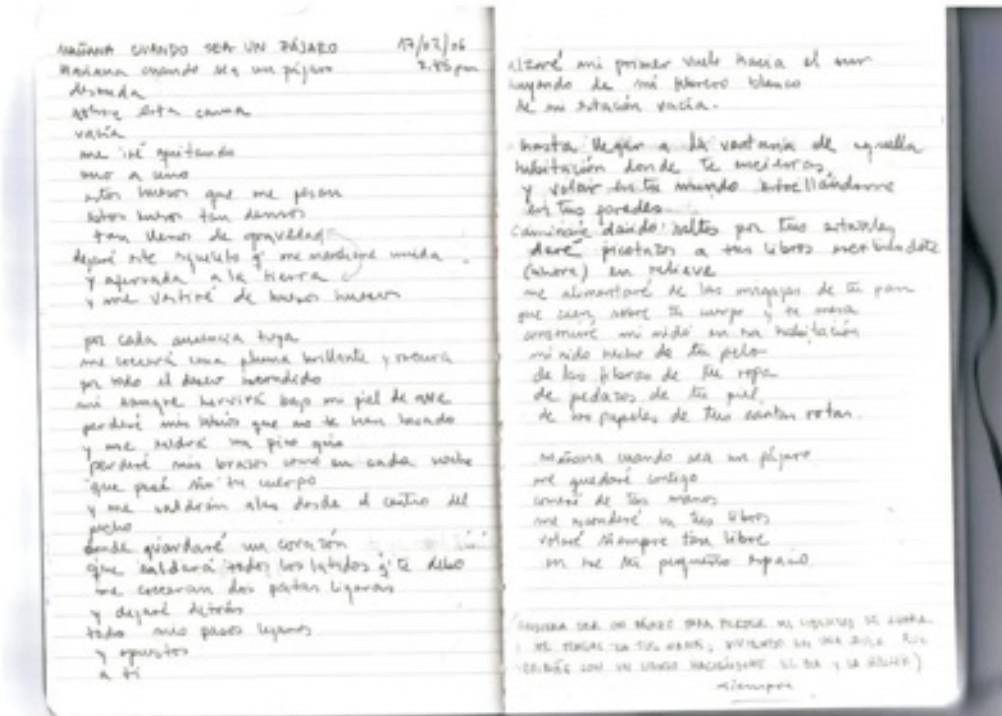 MAÑANA CUANDO SEA UN PÁJARO 17/02/06
Mañana cuando sea un pájaro 2.45 pm
desnuda
sobre esta cama
vacía
me iré quitando
uno a uno
estos huesos que me pesan
estos huesos tan densos
tan llenos de gravedad
dejaré este esqueleto q' me mantiene unida
y aferrada a la tierra
y me vestiré de huesos huecos
por cada ausencia tuya
me crecerá una pluma brillante y oscura
por todo el deseo escondido
mi sangre hervirá bajo mi piel de ave
perderé mis labios que no te han besado
y me saldrá un pico
perderé mis brazos como en cada noche
que pasé sin tu cuerpo
y me saldrán alas desde el centro del
pecho
donde guardaré un corazón
que saldará todos los latidos q' te debo
me crecerán dos patas ligeras
y dejaré detrás
todo mis pasos lejanos
y opuestos
a ti
alzaré mi primer vuelo hacia el sur
huyendo de mi febrero blanco
de mi estación vacía.
hasta llegar a la ventana de aquella
habitación donde te encierras
y volar en tu mundo estrellándome
en tus paredes
caminaré dando saltos por tus
daré picotazos a tus libros escribiéndote
(ahora) en relieve
me alimentaré de las migajas de tu pan
que caen sobre tu cuerpo y tu mesa
construiré mi nido en tu habitación
mi nido hecho de tu pelo
de las fibras de tu ropa
de pedazos de tu piel
de los papeles de tus cartas rotas.
Mañana cuando sea un pájaro
me quedaré contigo
comeré de tus manos
me esconderé en tus libros
volaré siempre tan libre
en ese tu pequeño espacio
(QUISIERA SER UN PÁJARO PARA PERDER MI
ME TENGAS EN TUS MANOS, VIVIENDO EN UNA JAULA
CON UN LIENZO HACIÉNDOME EL DÍA Y LA NOCHE)
siempre